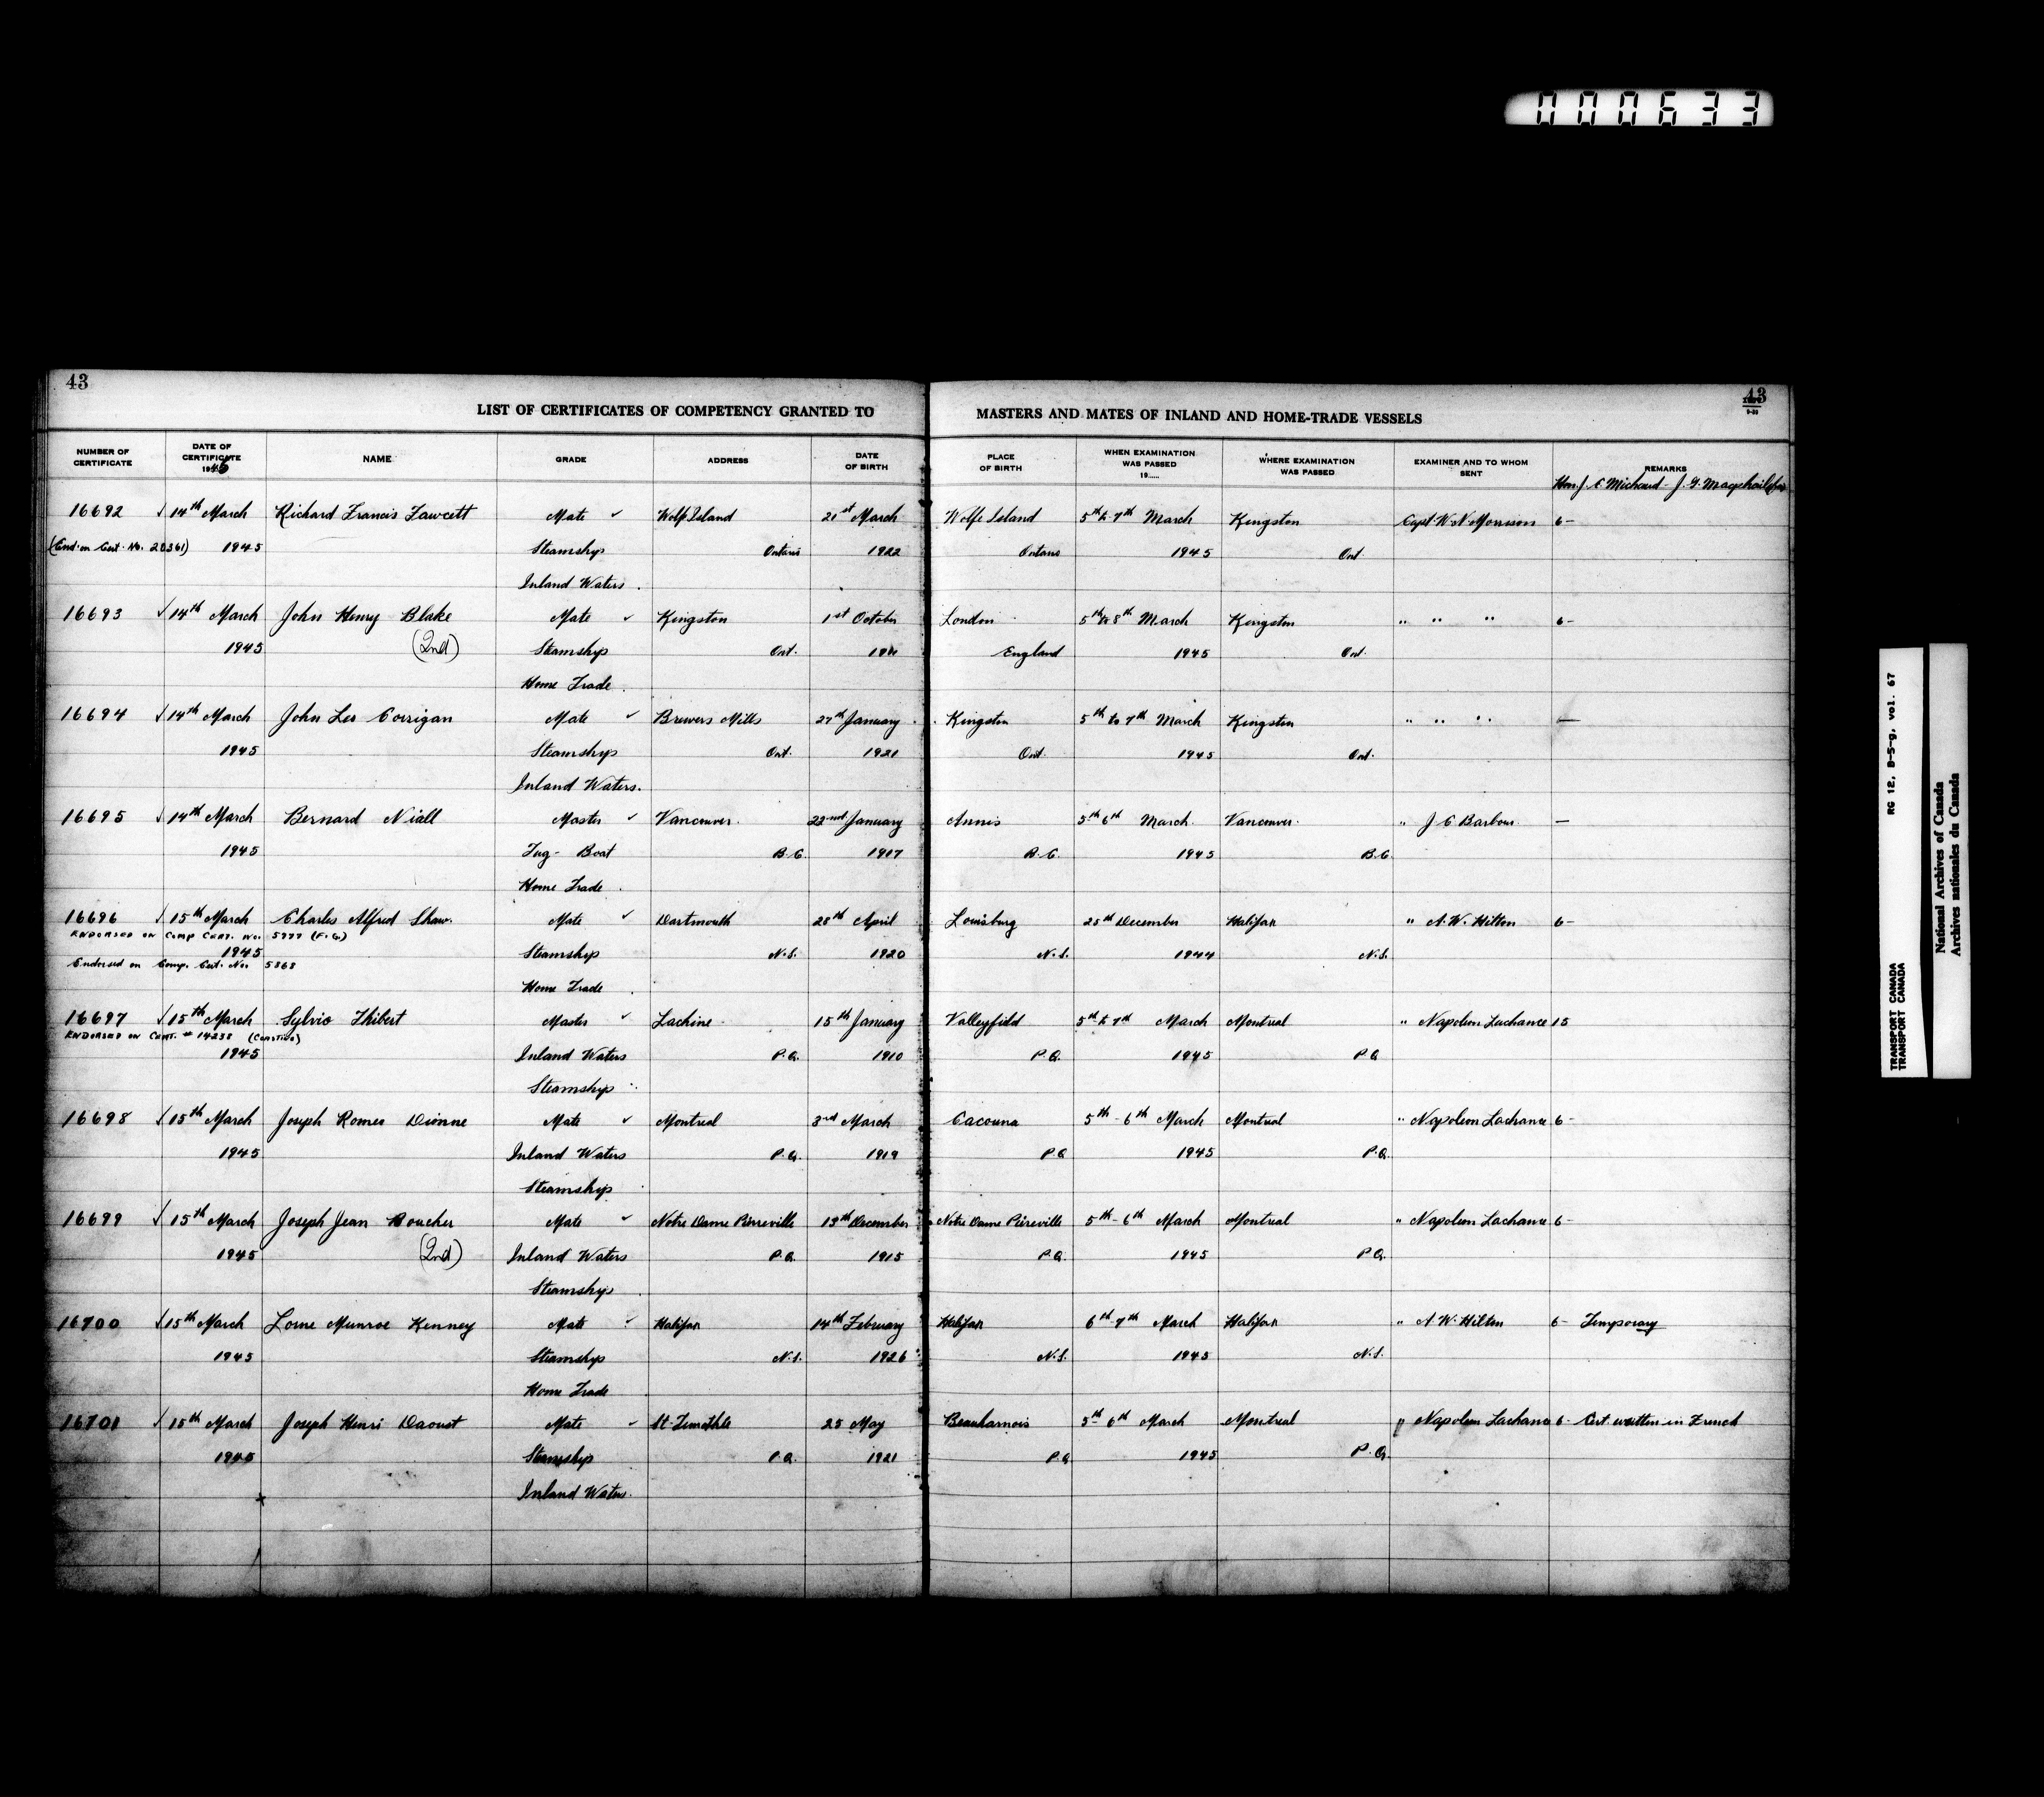 000633
43
43
LIST OF CERTIFICATES OF COMPETENCY GRANTED TO MASTERS AND MATES OF INLAND AND HOME-TRADE VESSELS
NUMBER OF CERTIFICATE DATE OF CERTIFICATE 1945 NAME GRADE ADDRESS DATE OF BIRTH PLACE OF BIRTH WHEN EXAMINATION WAS PASSED 19..... WHERE EXAMINATION WAS PASSED EXAMINER AND TO WHOM SENT REMARKS
Hon. J. E. Michaud - J. G. Macphail
16692 ✓ 14th March Richard Francis Fawcett Mate ✓ Wolfe Island 21st March Wolfe Island 5th to 7th March Kingston Capt W. N. Morrison 6-
(End. on Cert. No. 20361) 1945 Steamship Ontario 1922 Ontario 1945 Ont.
Inland Waters.
16693 ✓ 14th March John Henry Blake Mate ✓ Kingston 1st October London 5th to 8th March Kingston " " " 6-
1945 (2nd) Steamship Ont. England 1945 Ont.
Home Trade.
16694 ✓ 14th March John Leo Corrigan Mate ✓ Brewers Mills 27th January Kingston 5th to 7th March Kingston " " " —
1945 Steamship Ont. 1921 Ont. 1945 Ont.
Inland Waters.
16695 ✓ 14th March Bernard Niall Master ✓ Vancouver. 22nd January Annis 5th 6th March. Vancouver. " J C Barbour. —
1945 Tug-Boat B.C. 1917 B.C. 1945 B.C.
Home Trade.
16696 ✓ 15th March Charles Alfred Shaw. Mate ✓ Dartmouth 28th April Louisburg 28th December Halifax " A. W. Hilton 6-
ENDORSED ON COMP CERT. NO. 5777 (F.G.)
1945 Steamship N.S. 1920 N.S. 1944 N.S.
Endorsed on Comp. Cert. No. 5868
Home Trade.
16697 ✓ 15th March Sylvio Thibert Master ✓ Lachine 15th January Valleyfield 5th to 7th March Montreal " Napoleon Lachance 15
ENDORSED ON CERT. # 14238 (Coasting)
1945 Inland Waters P.Q. 1910 P.Q. 1945 P.Q.
Steamship
16698 ✓ 15th March Joseph Romeo Dionne Mate ✓ Montreal 3rd March Cacouna 5th - 6th March Montreal " Napoleon Lachance 6-
1945 Inland Waters P.Q. 1919 P.Q. 1945 P.Q.
Steamship
16699 ✓ 15th March Joseph Jean Boucher Mate ✓ Notre Dame Pierreville 13th December Notre Dame Pierreville 5th - 6th March Montreal " Napoleon Lachance 6-
1945 (2nd) Inland Waters P.Q. 1915 P.Q. 1945 P.Q.
Steamship.
16700 ✓ 15th March Lorne Munroe Kenney Mate ✓ Halifax 14th February Halifax 6th-7th March Halifax " A. W. Hilton 6- Temporary
1945 Steamship N.S. 1926 N.S. 1945 N.S.
Home Trade
16701 ✓ 15th March Joseph Henri Daoust Mate ✓ St-Timothée 25 May Beauharnois 5th 6th March Montreal " Napoleon Lachance 6- Cert. written in French
1945 Steamship P.Q. 1921 P.Q. 1945 P.Q.
Inland Waters.
x
TRANSPORT CANADA RG 12, B-5-g, vol. 67
TRANSPORT CANADA
National Archives of Canada
Archives nationales du Canada